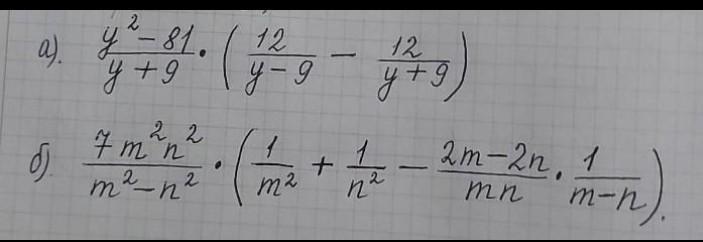 а). \frac{y^2-81}{y+9} \cdot \left( \frac{12}{y-9} - \frac{12}{y+9} \right)
б) \frac{7m^2n^2}{m^2-n^2} \cdot \left( \frac{1}{m^2} + \frac{1}{n^2} - \frac{2m-2n}{mn} \cdot \frac{1}{m-n} \right).